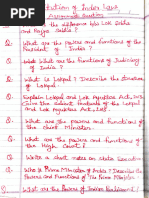 Evolution of Indian Laws
Assignment Question
Q. What is the difference b/w Lok Sabha
and Rajya Sabha?
Q. What are the powers and functions of the
President of India?
Q. What are the functions of Judiciary
of India?
Q. What is Lokpal? Describe the structure
of Lokpal.
Q. Explain Lokpal and Lok Ayuktas Act
and Lok Ayuktas Act.
Q. What are the powers and functions of
the Chief Minister.
Q. What are the powers and functions of
the High Court?
Q. Write a short notes on State Executive
Q. Who is Prime Minister of India? Describe
Powers and Functions of the Prime Minister.
Q. What are the Powers of Indian Parliament?